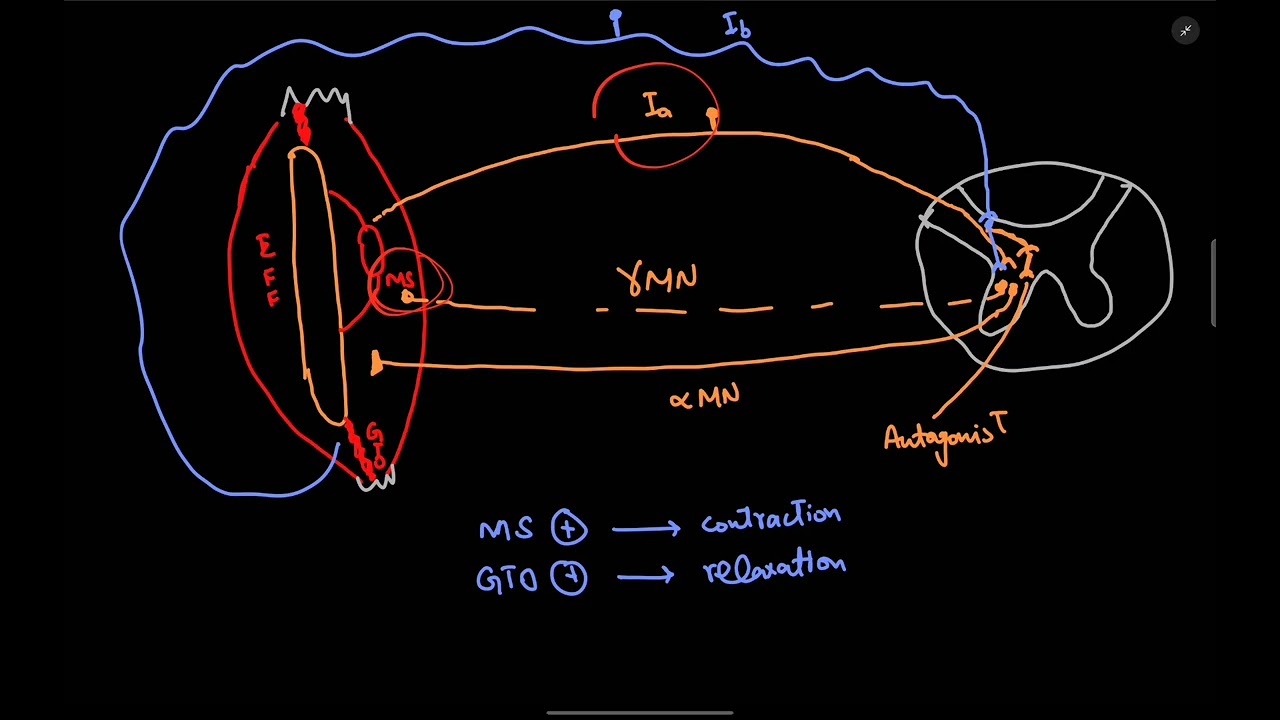 Ib
Ia
EFF
MS
γMN
αMN
GTO
Antagonist
MS + → contraction
GTO + → relaxation